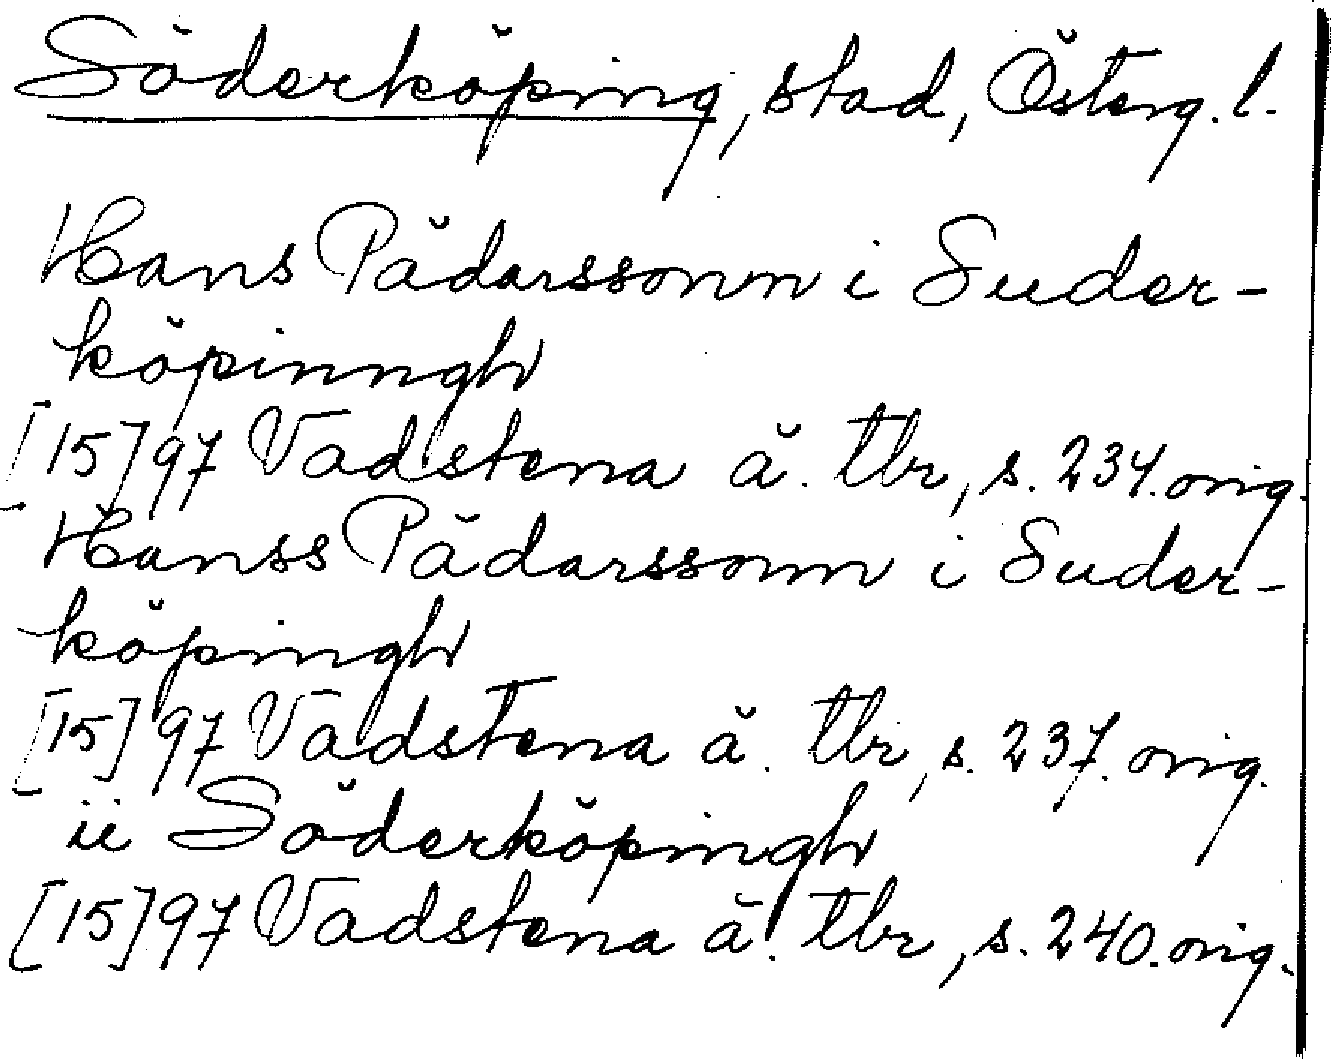 Söderköping, stad, Österg. l.
Hans Pädarssonn i Suder-
köpinngh
[15]97 Vadstena ä. tbr, s. 234. orig.
Hanss Pädarssonn i Suder-
köpingh
[15]97 Vadstena ä. tbr, s. 237. orig.
ii Söderköpingh
[15]97 Vadstena ä. tbr, s. 240. orig.